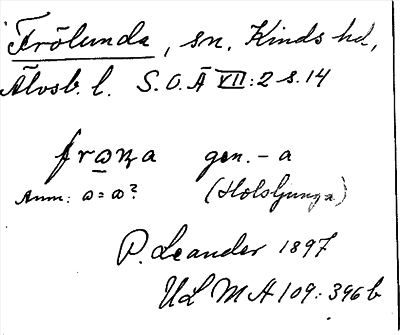 Frölunda, sn, Kinds hd,
Älvsb. l. S.O.Ä VII:2 s. 14
gen. - a
Anm: ω = ω?
(Holsljunga)
P. Leander 1897
ULMA 109:396b